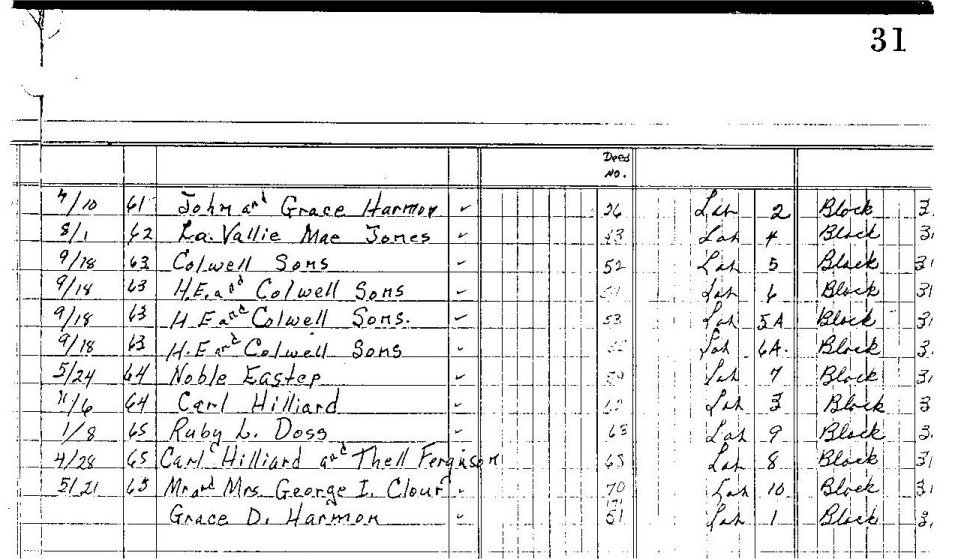 31
Deed No.
4/10 61 John and Grace Harmon ✓ 26 Lot 2 Block
8/1 62 La. Vallie Mae Jones ✓ Lot 4 Block 31
9/18 63 Colwell Sons ✓ 52 Lot 5 Block 31
9/18 63 H.E. and Colwell Sons ✓ Lot 6 Block 31
9/18 63 H E and Colwell Sons. ✓ 53 Lot 5A Block 31
9/18 63 H.E and Colwell Sons ✓ Lot 6A. Block
5/24 64 Noble Eastep ✓ Lot 7 Block 31
11/6 64 Carl Hilliard ✓ Lot 3 Block
1/8 65 Ruby L. Doss ✓ 63 Lot 9 Block
4/28 65 Carl Hilliard and Thell Ferguson Lot 8 Block 31
5/21 65 Mr and Mrs. George I. Clour ✓ 70 Lot 10 Block 31
Grace D. Harmon ✓ 51 Lot 1 Block